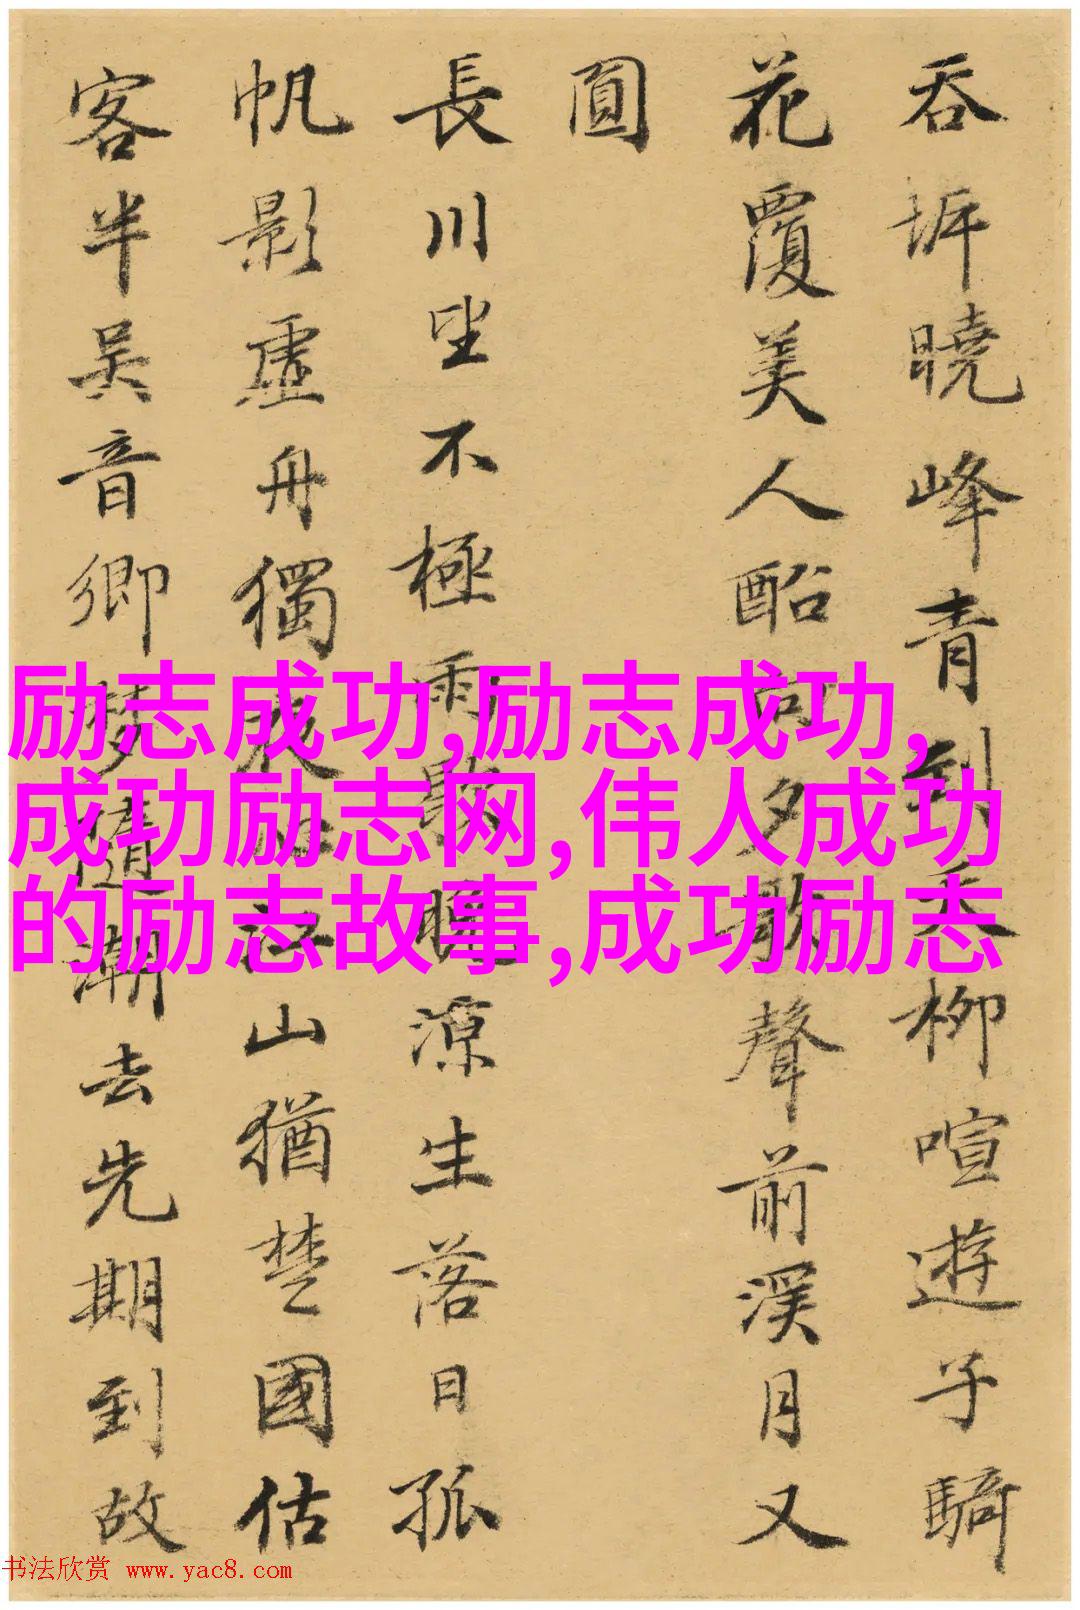 吞坼曉峰青到天柳喧遊子騎
花覆美人船向夕歌聲前溪月又
圓
長川坐不極雨歇晚涼生落日孤
帆影虛舟獨夜山猶楚國估
客半吳音鄉夢隨潮去先期到故
励志成功,励志成功,
成功励志网,伟人成功
的励志故事,成功励志
书法欣赏 www.yac8.com